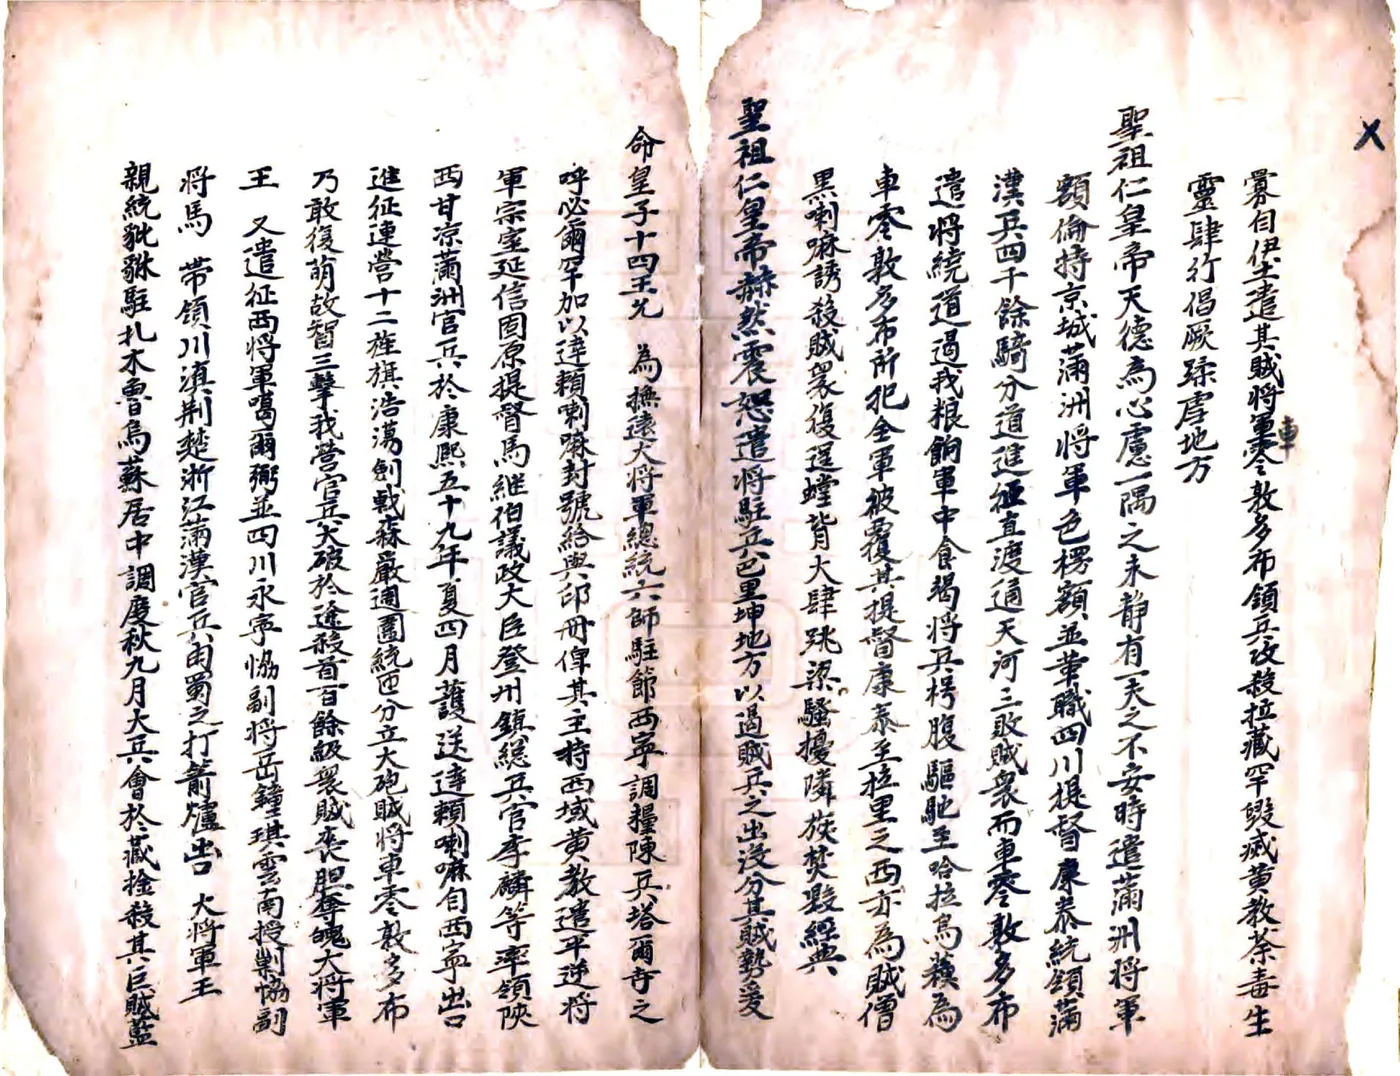 寡自伊土遣其賊將車零敦多布領兵改殺拉藏罕毀威黄教荼毒生
靈肆行倡厥蹂虐地方
聖祖仁皇帝天德為心慮一隅之未靜有一夫之不安時遣滿洲將軍
額倫持京城滿洲將軍色楞額並革職四川提督康泰統領滿
漢兵四千餘騎分道進征直渡通天河三敗賊衆而車零敦多布
遣將繞道遏我粮餉軍中食竭將兵枵腹驅馳至哈拉烏蘇為
車零敦多布所犯全軍被覆其提督康泰至拉里之西亦為賊僧
黑喇嘛誘殺賊衆復逞螳背大肆跳梁騷擾隣族焚毀經典
聖祖仁皇帝赫然震怒遣將駐兵巴里坤地方以遏賊兵之出没分其賊勢爰
命皇子十四王允 為撫遠大將軍總統六師駐節西寧調糧陳兵塔爾寺之
呼必爾罕加以達賴喇嘛封號給與印冊俾其主持西域黄教遣平逆將
軍宗室延信固原提督馬繼伯議政大臣登州鎮總兵官李麟等率領陜
西甘凉蒲洲官兵於康熙五十九年夏四月護送達賴喇嘛自西寧出口
進征連營十二旌旗浩蕩劍戟森嚴週圍統匝分立大砲賊將車零敦多布
乃敢復萌故智三擊我營官兵大破於途殺首百餘級衆賊喪胆奪魄大將軍
王 又遣征西將軍噶爾弼並四川永寧協副將岳鐘琪雲南授剿協副
將馬 帶領川滇荆楚浙江滿漢官兵由蜀之打箭爐出口 大將軍王
親統貔貅駐扎木魯烏蘇居中調度秋九月大兵會於藏捡殺其巨賊藍